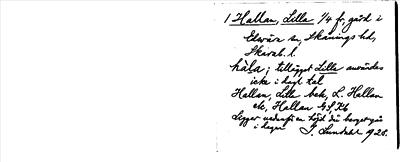 1 Hallan, Lilla 1/4 fr. gård i
Edsvära sn, Skånings hd,
Skarab. l.
håla; tillägget Lilla användes
icke i dagl. tal
Hallan, Lilla bek, L. Hallan
ek, Hallan GS, Kb
Ligger nedanför en höjd
i hagen J. Lundahl 1925.